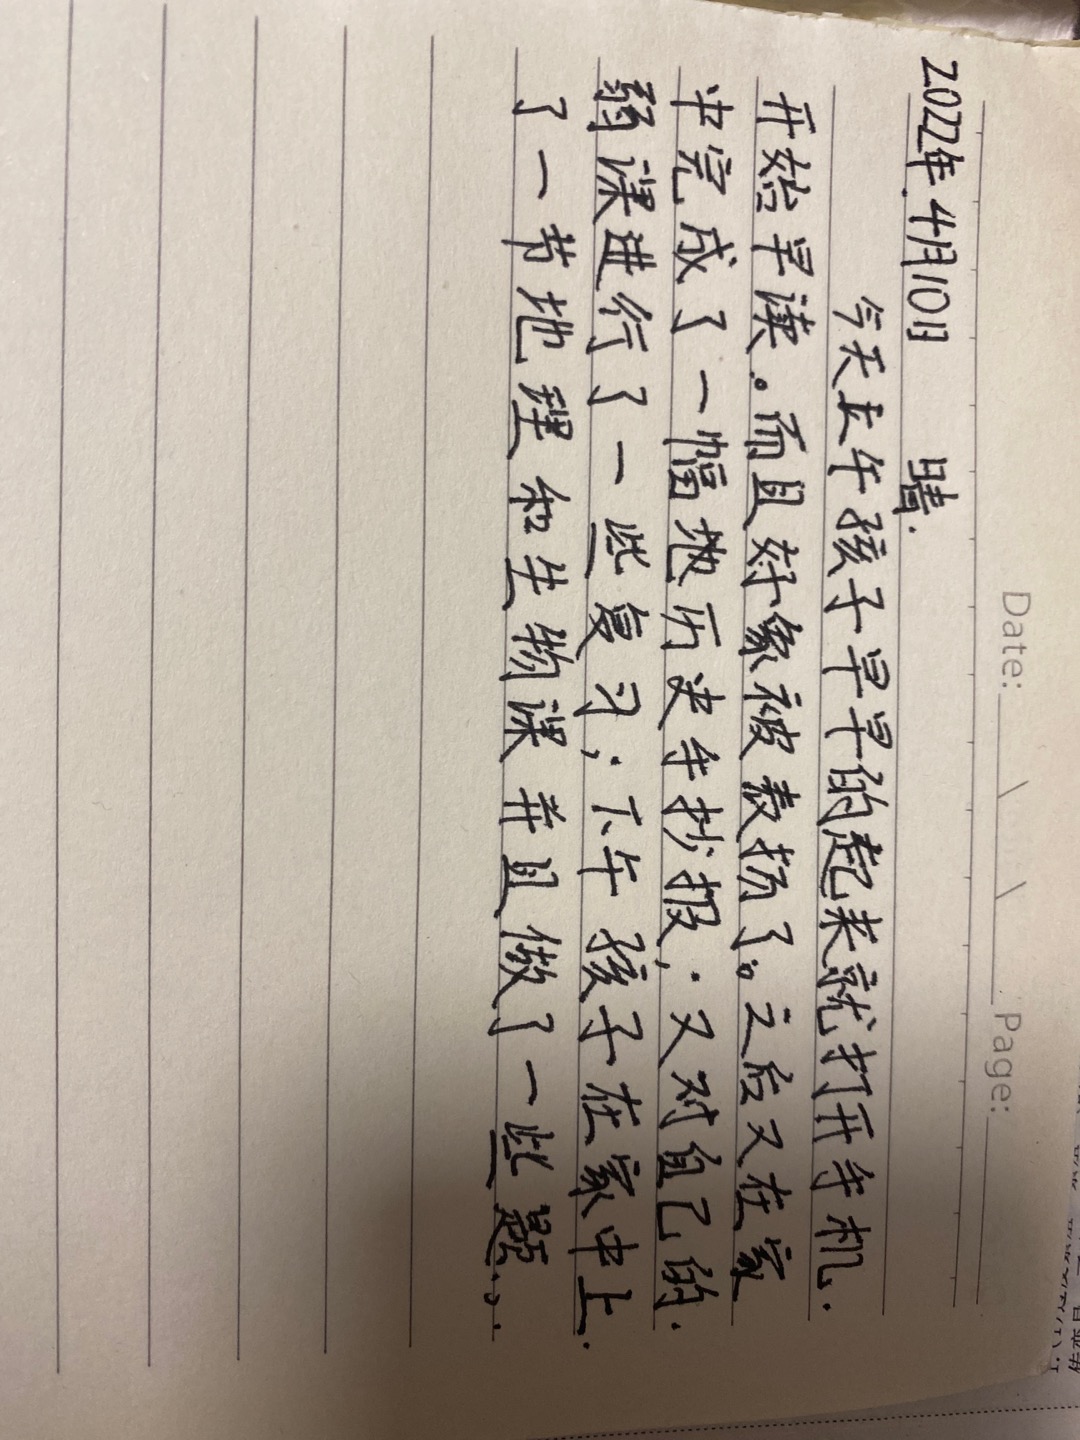 Date: Page:
2022年.4月10日 晴.
今天上午孩子早早的起来就打开手机.
开始早读。而且好象被表扬了。之后又在家
中完成了一幅地历史手抄报,.又对自己的.
弱课进行了一些复习,.下午孩子在家中上.
了一节地理和生物课并且做了一些题.。.